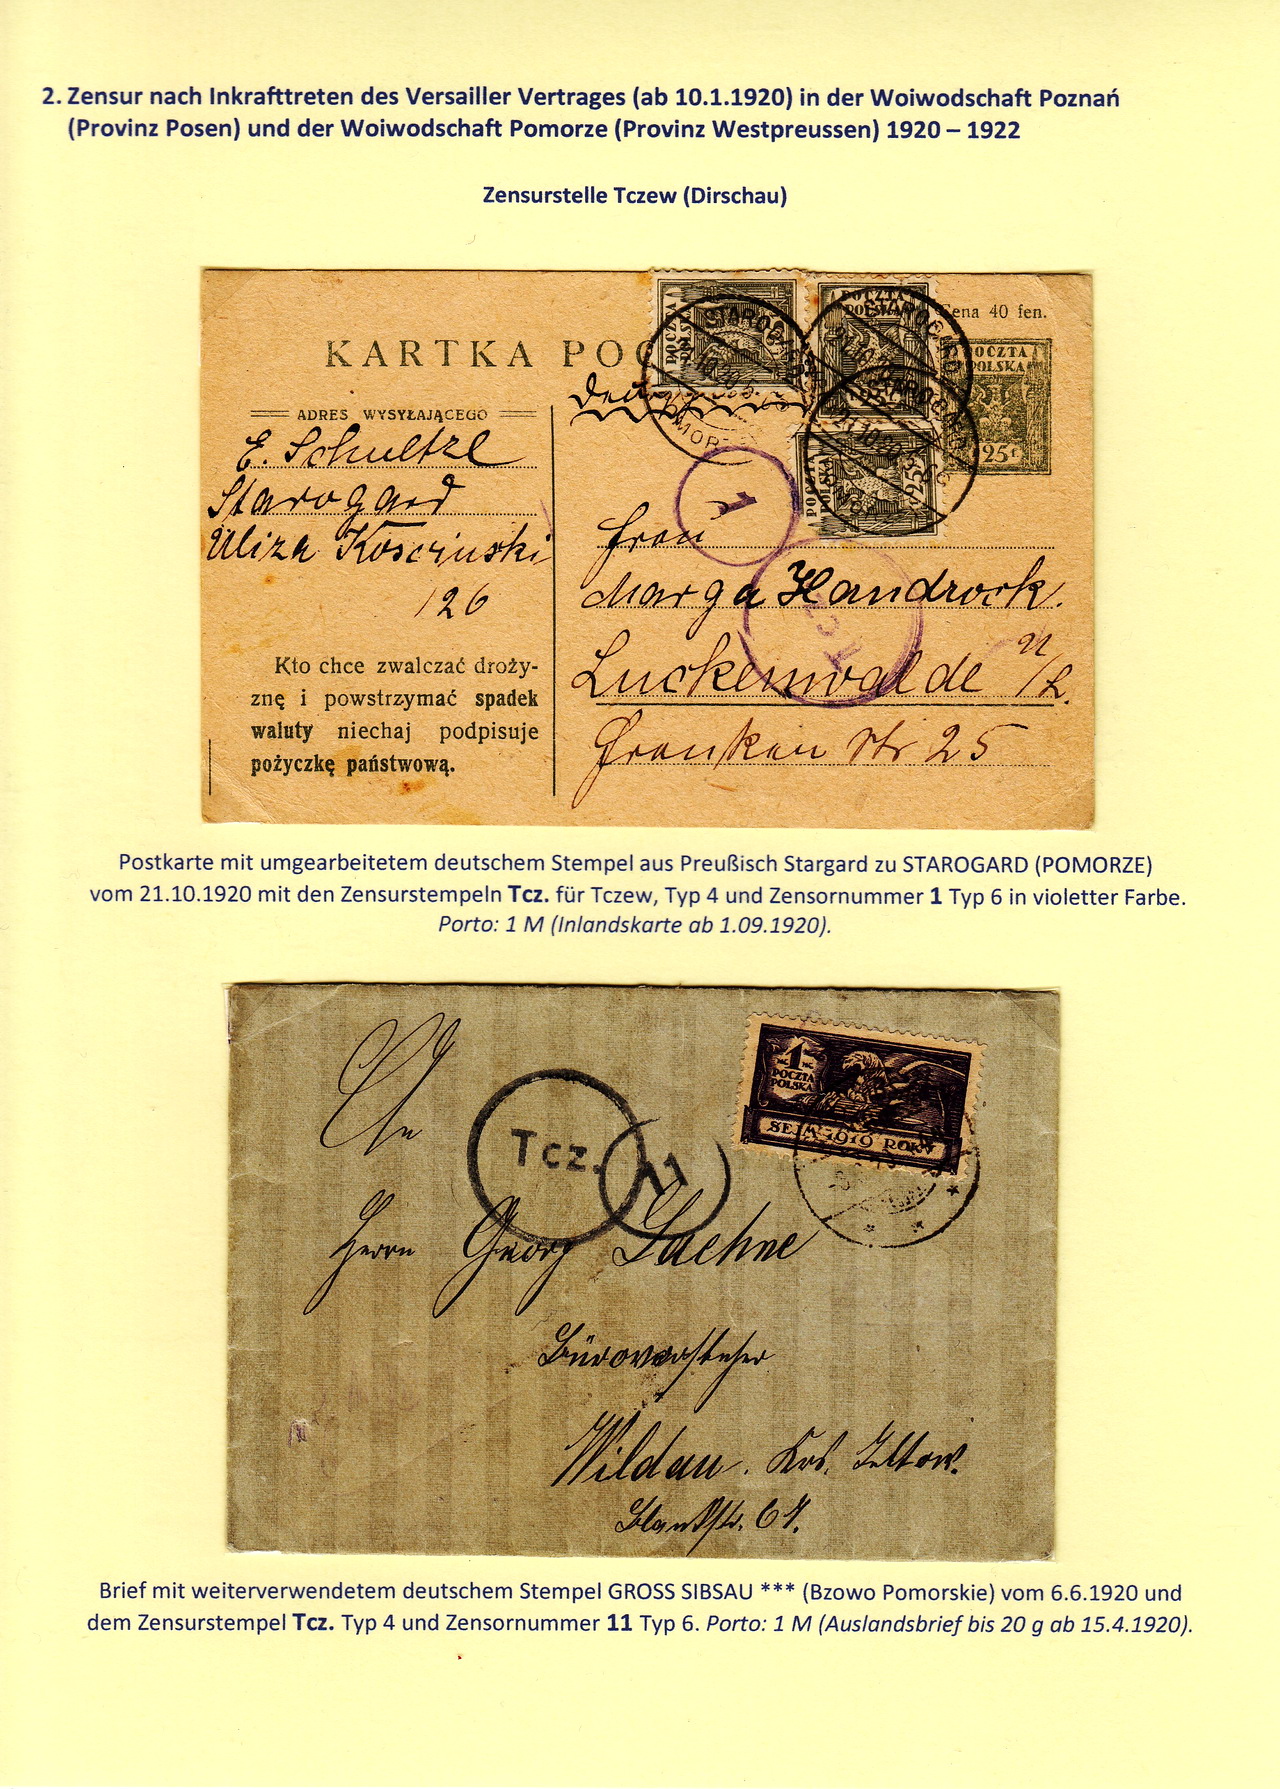 2. Zensur nach Inkrafttreten des Versailler Vertrages (ab 10.1.1920) in der Woiwodschaft Poznań
(Provinz Posen) und der Woiwodschaft Pomorze (Provinz Westpreussen) 1920 – 1922
Zensurstelle Tczew (Dirschau)
Cena 40 fen.
KARTKA POC
POCZTA POLSKA
25
POCZTA POLSKA
25 f
STAROGARD
21.10.20
ADRES WYSYŁAJĄCEGO
E. Schultzl
Starogard
Uliza Kosciuski
126
Kto chce zwalczać droży-
znę i powstrzymać spadek
waluty niechaj podpisuje
pożyczkę państwową.
1
Tcz.
Frau
Marga Handrock.
Luckenwalde
Franken str 25
Postkarte mit umgearbeitetem deutschem Stempel aus Preußisch Stargard zu STAROGARD (POMORZE)
vom 21.10.1920 mit den Zensurstempeln Tcz. für Tczew, Typ 4 und Zensornummer 1 Typ 6 in violetter Farbe.
Porto: 1 M (Inlandskarte ab 1.09.1920).
1
POCZTA
POLSKA
SEJM 1919 ROKU
An
Tcz.
11
Herrn Georg Laehne
Bürovorsteher
Wildau. Krs. Teltow.
Brief mit weiterverwendetem deutschem Stempel GROSS SIBSAU *** (Bzowo Pomorskie) vom 6.6.1920 und
dem Zensurstempel Tcz. Typ 4 und Zensornummer 11 Typ 6. Porto: 1 M (Auslandsbrief bis 20 g ab 15.4.1920).